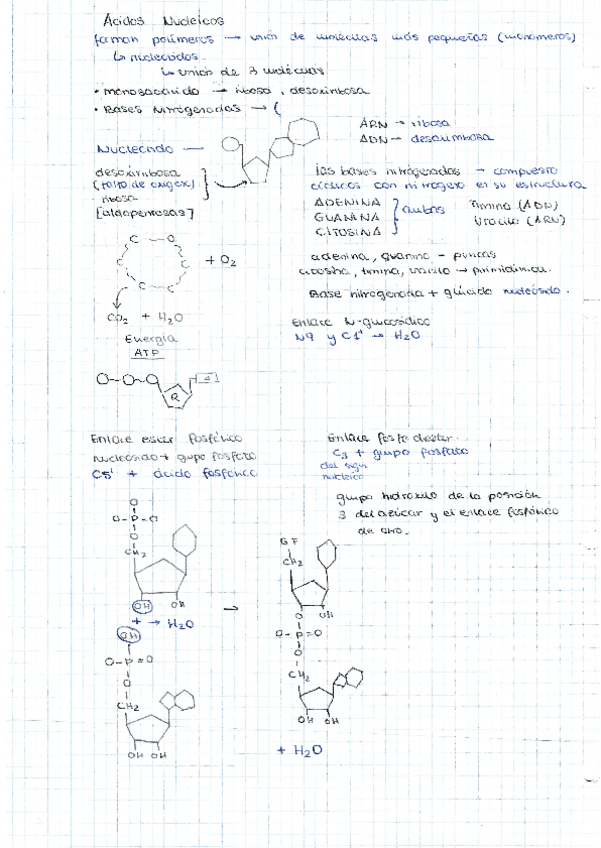 Ácidos Nucleicos
forman polímeros → unión de moléculas más pequeñas (monómeros)
↳ nucleótidos.
↳ unión de 3 moléculas
• monosacárido → ribosa, desoxirribosa
• Bases Nitrogenadas → (
ARN → ribosa
ADN → desoxirribosa
Nucleótido —
desoxirribosa
(falta de oxígeno)
ribosa
[aldopentosas]
las bases nitrogenadas → compuesto
cíclicos con nitrógeno en su estructura
ADENINA
GUANINA
CITOSINA
ambos
Timina (ADN)
Uracilo (ARN)
adenina, guanina - púricas
citosina, timina, uracilo → pirimidínicas.
Base nitrogenada + glúcido nucleósido.
C - O
C
C
C - C
+ O2
CO2 + H2O
Energía
ATP
Enlace N-glucosídico
N9 y C1' → H2O
O-O-O
R
A
Enlace ester fosfórico
nucleósido + grupo fosfato
C5' + ácido fosfórico
Enlace fosfodiester.
C3 + grupo fosfato
del sigu
grupo hidroxilo de la posición
3 del azúcar y el enlace fosfórico
de otro.
O
O-P-O
O
CH2
OH OH
+ → H2O
OH
O-P=O
O
CH2
OH OH
→
GF
CH2
O OH
O-P=O
O
CH2
OH OH
+ H2O